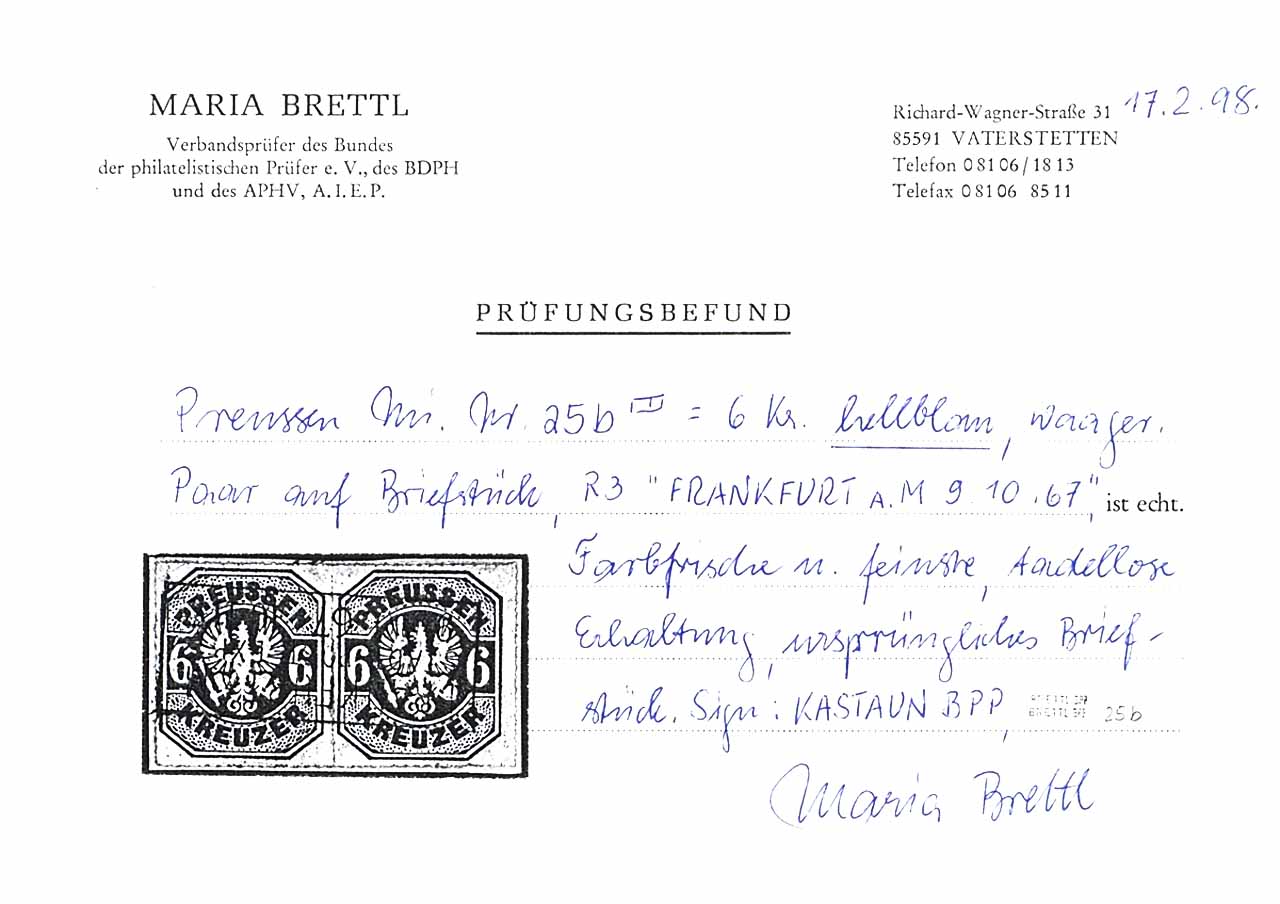 MARIA BRETTL
Verbandsprüfer des Bundes
der philatelistischen Prüfer e. V., des BDPH
und des APHV, A.I.E.P.
Richard-Wagner-Straße 31 17.2.98.
85591 VATERSTETTEN
Telefon 08106/1813
Telefax 08106 8511
PRÜFUNGSBEFUND
Preussen Mi. Nr. 25b = 6 Kr. hellblau, waager.
Paar auf Briefstück, R3 "FRANKFURT A.M 9 10.67", ist echt.
Farbfrische u. feinste, tadellose
Erhaltung, ursprüngliches Brief-
stück. Sign: KASTAUN BPP,
BRETTL BPP 25b
PREUSSEN PREUSSEN
6 6 6 6
KREUZER KREUZER
Maria Brettl